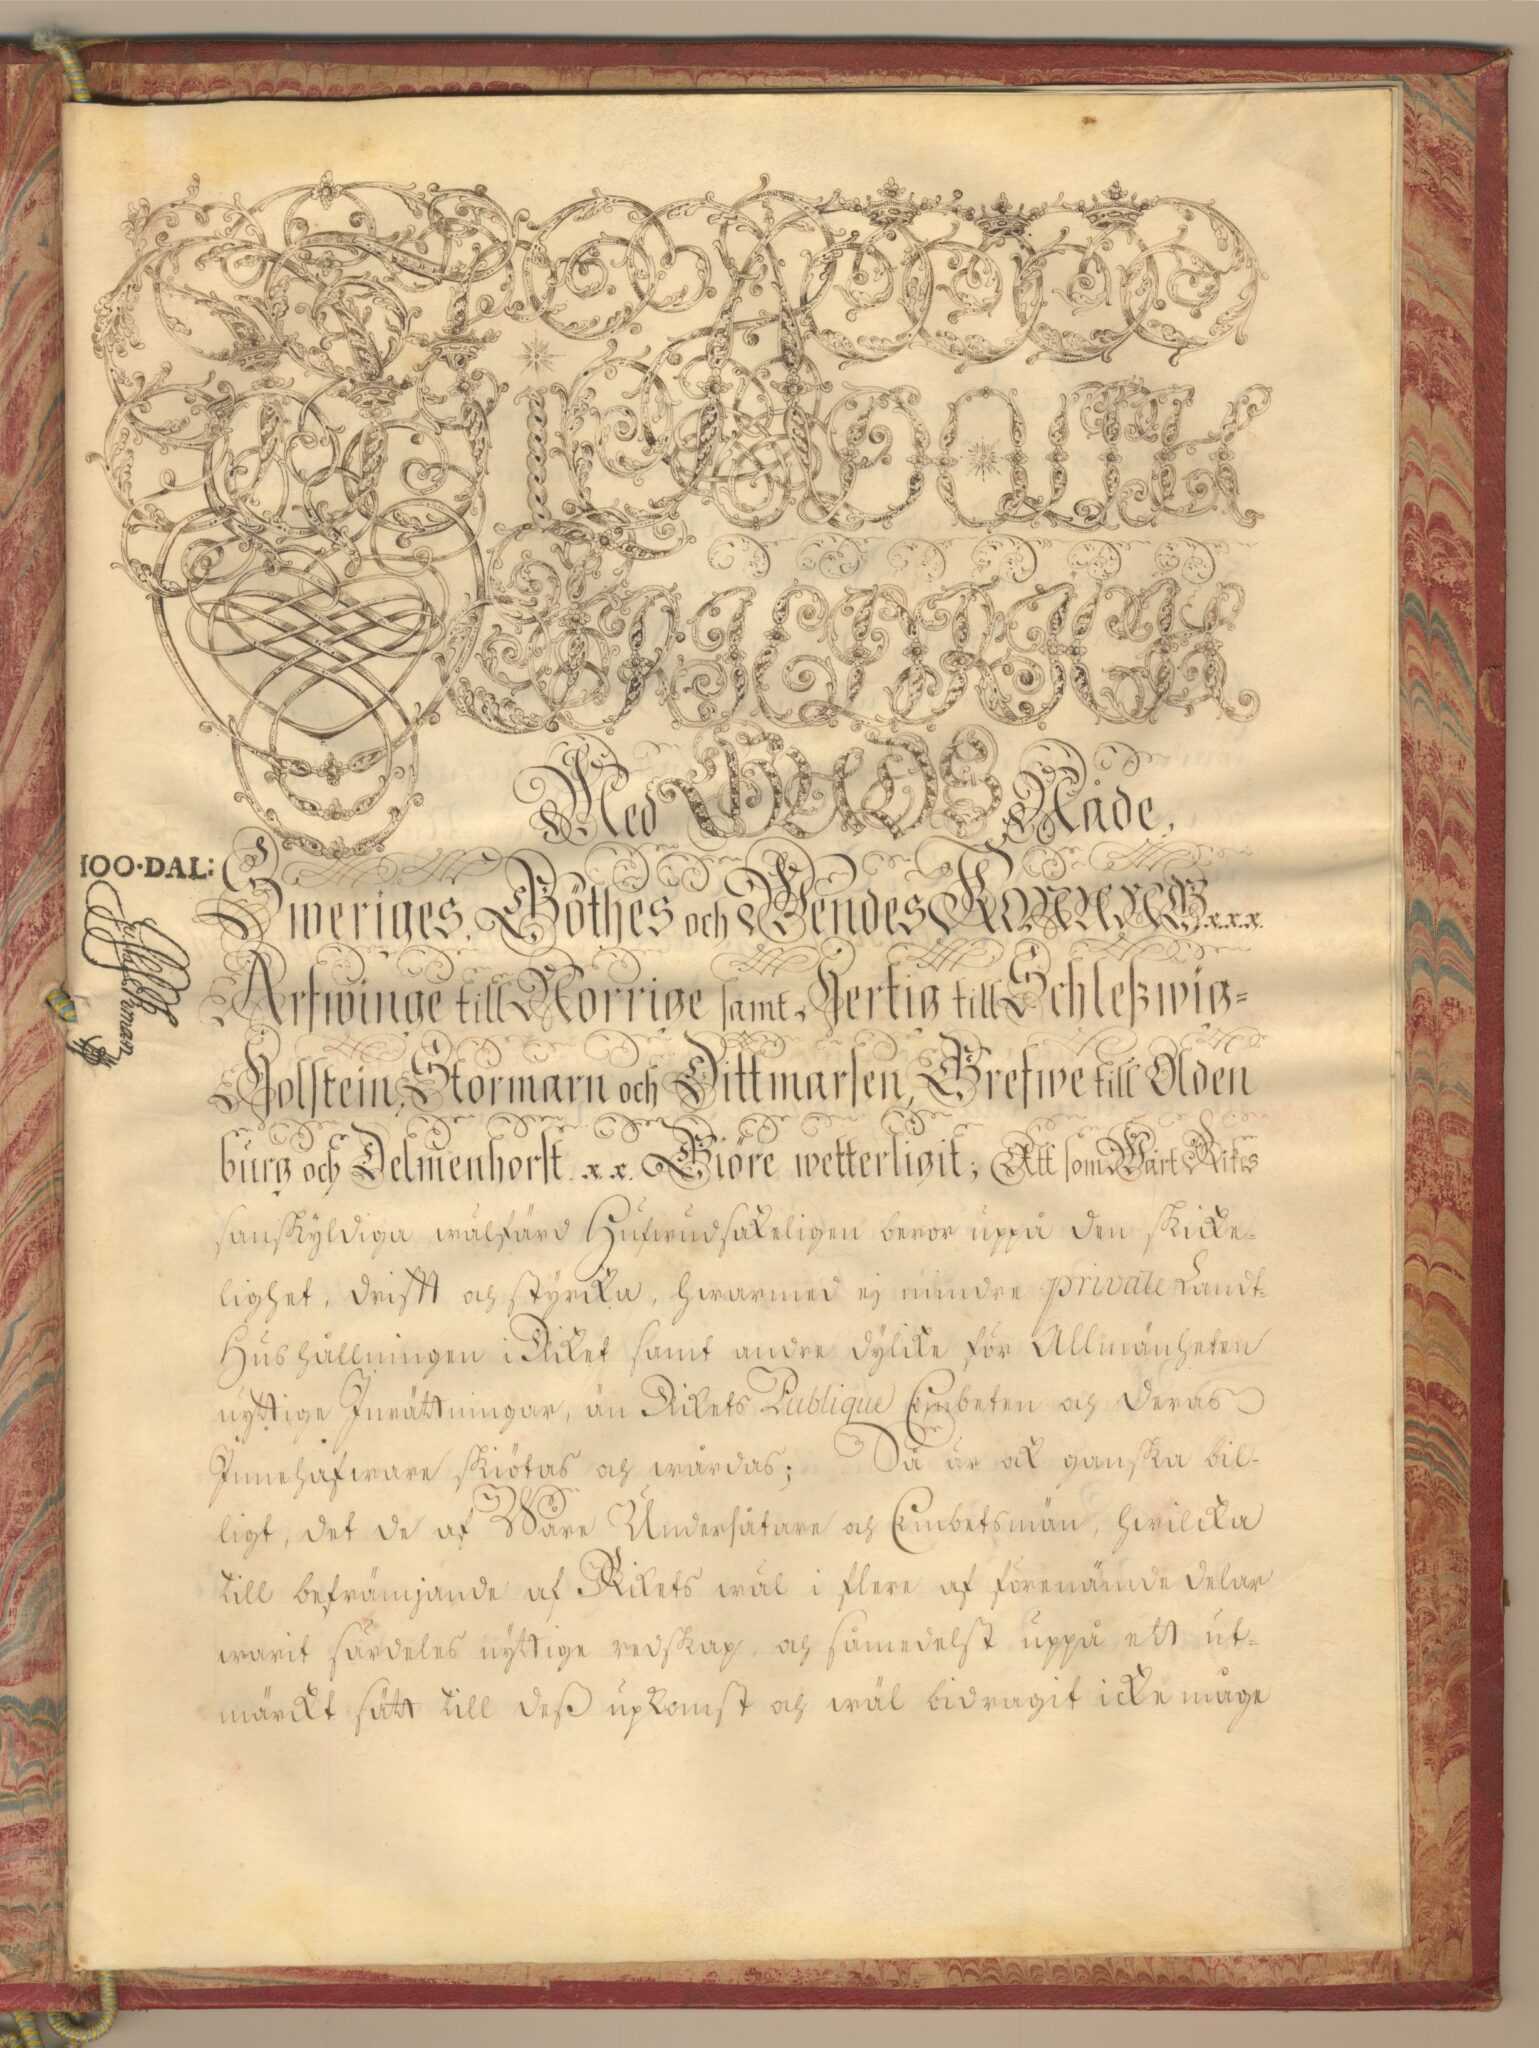 Wi ADOLPH
FRIEDRICH
Med GUDS Nåde,
100·DAL:
Sweriges, Göthes och Wendes Konung x.x.x.
Arfwinge till Norrige samt Hertig till Schleßwig-
Holstein, Stormarn och Dittmarsen, Grefwe till Olden
burg och Delmenhorst. x. x. Giöre wetterligit; Att som Wårt Rikes
sanskyldiga wälfärd Hufwudsakeligen beror uppå den skicke-
lighet, drifft och styrcka, hwarmed ej mindre private Landt-
Hushållningen i Riket samt andre dylike för Allmänheten
nyttige Inrättningar, än Rikets Publique Embeten och deras
Innehafware skiötas och wårdas; Då är ock ganska bil-
ligt, det de af Wåre Undersåtare och Embetsmän, hwilcka
till befrämjande af Rikets wäl i flere af förenämde delar
warit särdeles nyttige redskap, och såmedelst uppå ett ut-
märckt sätt till deß upkomst och wäl bidragit icke måge